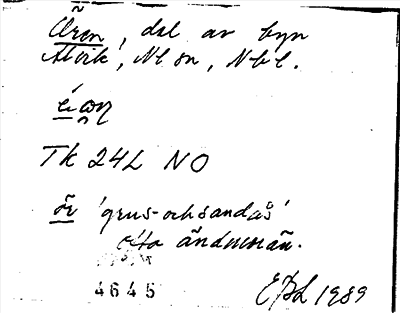 Ören, del av byn
Alvik, Nl sn, Nbl.
Tk 24L NO
ör 'grus- och sandås'
ofta ändmorän.
4645
EBL 1989